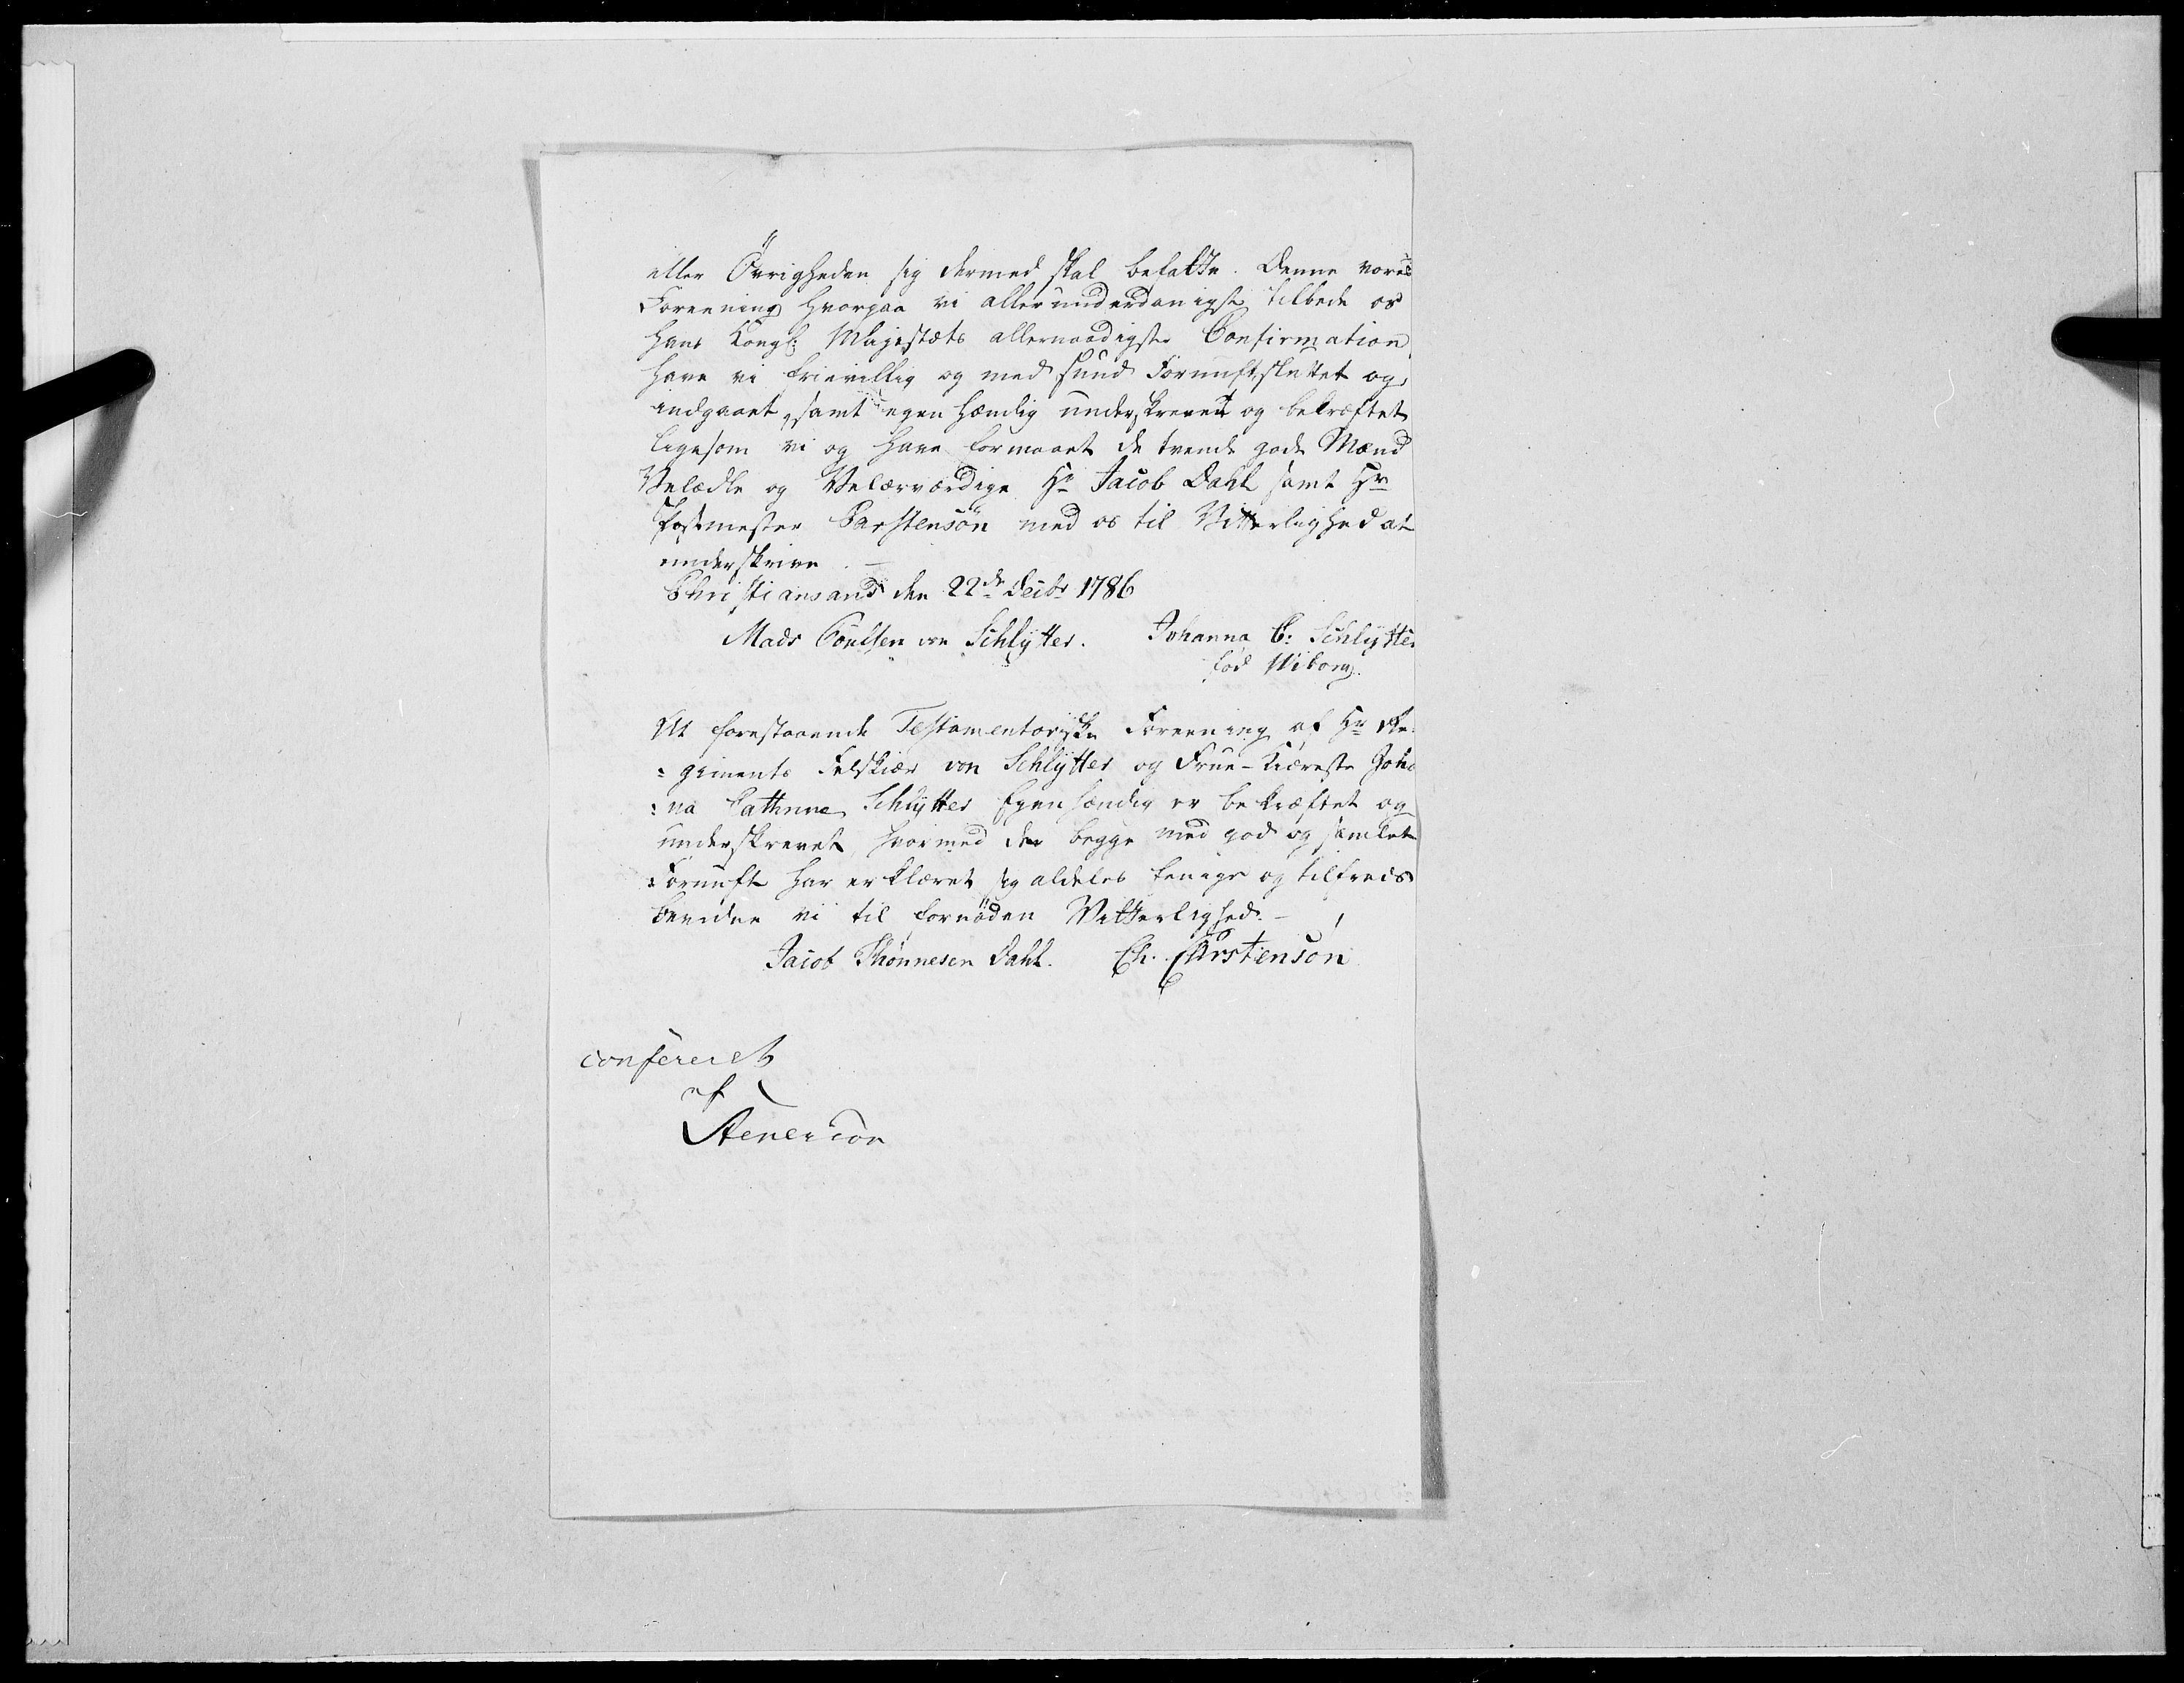 eller Övrigheden sig dermed skal befatte. Denne vores
Foreening hvorpaa vi allerunderdanigst tilbede os
Hans Kongl: Majestæts allernaadigste Confirmation
have vi frievillig og med sund Fornuft sluttet og
indgaaet, samt egenhændig underskrevet og bekræftet
ligesom vi og have formaaet de tvende gode Mænd
Velædle og Velærværdige Hr Jacob Dahl samt Hr
Postmester Carstensön med os til Vitterlighed at
underskrive. –
Christiansand den 22de Decbr 1786
Mads Poulsen von Schlytter. Johanna C: Schlytter
fød Wiborg.
At forestaaende Testamentariske Foreening af Hr Re-
:giments Feldskiær von Schlytter og Frue-Kiæreste Joha
:na Cathrine Schlytter Egenhændig er bekræftet og
underskrevet, hvormed de begge med god og samlet
Fornuft har erklæret sig aldeles eenige og tilfreds
bevidner vi til fornöden Vitterlighed. –
Jacob Thönnesen Dahl. Ch. Carstensön
confereret
af
Stenerson